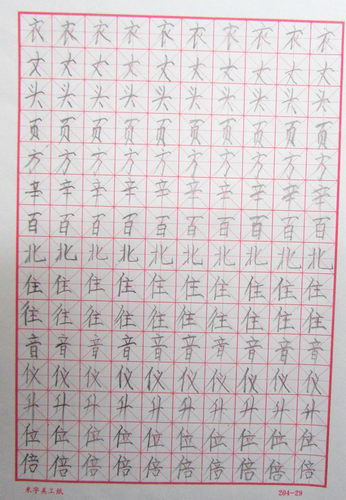 衣衣衣衣衣衣衣衣衣衣
文文文文文文文文文文
头头头头头头头头头头
页页页页页页页页页页
方方方方方方方方方方
辛辛辛辛辛辛辛辛辛辛
百百百百百百百百百百
北北北北北北北北北北
住住住住住住住住住住
往往往往往往往往往往
音音音音音音音音音音
仪仪仪仪仪仪仪仪仪仪
升升升升升升升升升升
位位位位位位位位位位
倍倍倍倍倍倍倍倍倍倍
米字美工纸 204-29